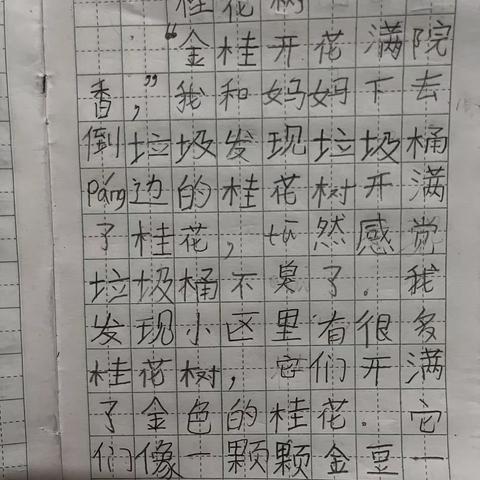 桂花树
“金桂开花满院
香,”我和妈妈下去
倒垃圾发现垃圾桶
páng边的桂花树开满
了桂花,tū然感觉
垃圾桶不臭了.我
发现小区里有很多
桂花树,它们开满
了金色的桂花.它
们像一颗颗金豆一